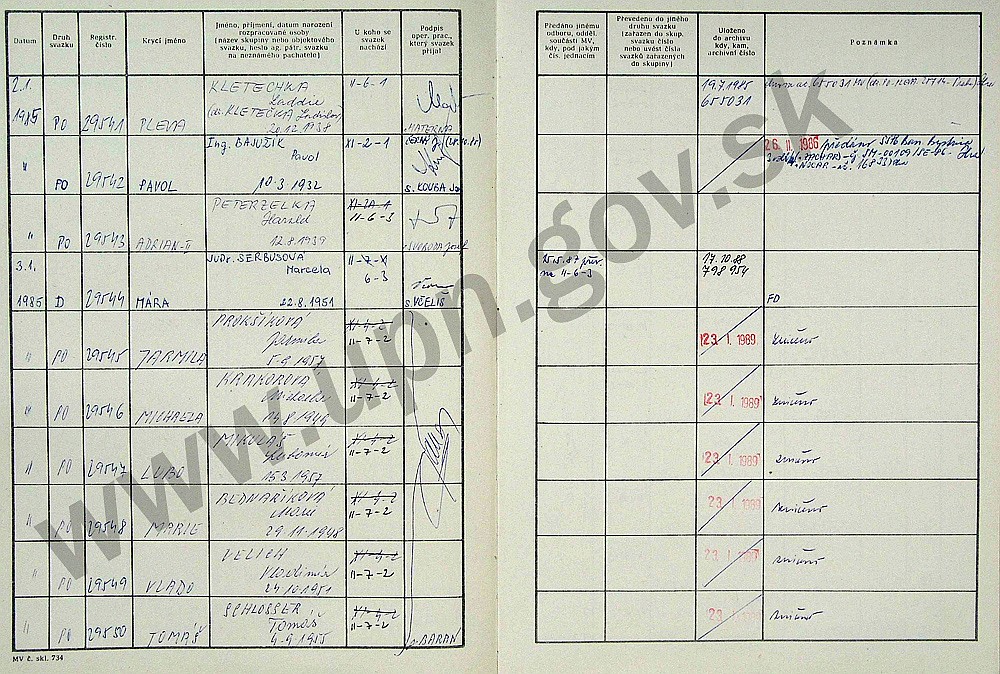 Datum
Druh svazku
Registr. číslo
Krycí jméno
Jméno, příjmení, datum narození
rozpracované osoby
(název skupiny nebo objektového
svazku, heslo ag. pátr. svazku
na neznámého pachatele)
U koho se
svazek
nachází
Podpis
oper. prac.,
který svazek
přijal
Předáno jinému
odboru, odděl.
součásti MV,
kdy, pod jakým
čís. jednacím
Převedeno do jiného
druhu svazku
(zařazen do skup.
svazku číslo
nebo uvést čísla
svazků zařazených
do skupiny)
Uloženo
do archivu
kdy, kam,
archivní číslo
Poznámka
2.1.
1985 PO 29541 PLEVA
KLETECHKA
Laddie
(KLETEČKA Ladislav)
20.12.1938
II-6-1
MATERNA
19.7.1985
655031
" PO 29542 PAVOL
Ing. BAJUŽIK
Pavol
10.3.1932
XI-2-1
s. KOUBA
26. II. 1986 předáno
" PO 29543 ADRIAN-II
PETERZELKA
Harald
12.8.1939
XI-2A-1
II-6-3
SVOBODA Josef
3.1.
1985 D 29544 MÁRA
JUDr. SERBUSOVÁ
Marcela
22.8.1951
II-7-X
6-3
s. VČELIŠ
15.5.87
na II-6-3
17.10.88
798 954
FO
" PO 29545 JARMILA
PROKŠÍKOVÁ
Jarmila
5.9.1957
XI-4-2
II-7-2
23. I. 1989
zničeno
" PO 29546 MICHAELA
KRAKOROVÁ
Michaela
14.8.1949
XI-4-2
II-7-2
23. I. 1989
zničeno
" PO 29547 LUBO
MIKULÁŠ
Lubomír
15.3.1957
XI-4-2
II-7-2
23. I. 1989
zničeno
" PO 29548 MARIE
BEDNAŘÍKOVÁ
Marie
29.11.1948
XI-4-2
II-7-2
23. I. 1989
zničeno
" PO 29549 VLADO
VELICH
Vladimír
24.10.1951
XI-4-2
II-7-2
23. I. 1989
zničeno
" PO 29550 TOMÁŠ
SCHLOSSER
Tomáš
4.9.1955
XI-4-2
II-7-2
s. BARAN
23. I. 1989
zničeno
MV č. skl. 734
www.upn.gov.sk